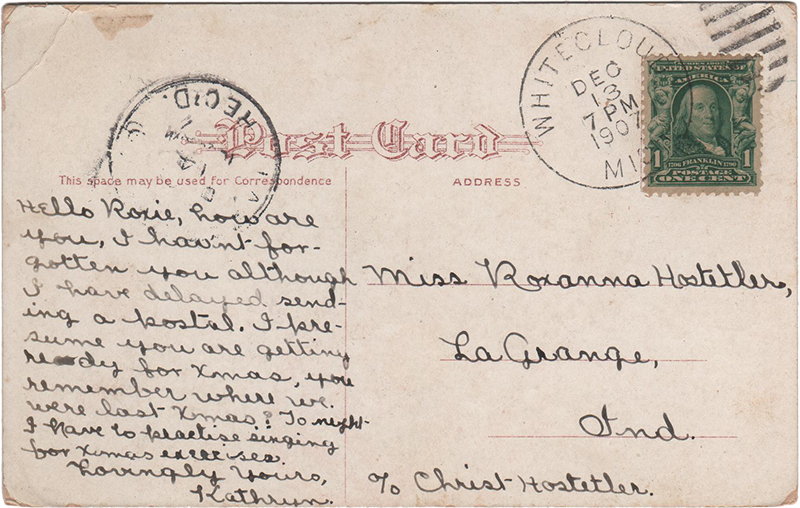 WHITECLOU
DEC
13
7 PM
1907
MI
REC'D.
SERIES 1902
UNITED STATES OF
AMERICA
1706 FRANKLIN 1790
1 1
POSTAGE
ONE CENT
Post Card
This space may be used for Correspondence
ADDRESS
Hello Roxie, how are
you, I hav'nt for-
gotten you although
I have delayed send-
ing a postal. I pre-
sume you are getting
ready for Xmas, you
remember where we
were last Xmas? To night
I have to practise singing
for Xmas exercises.
Lovingly Yours,
Kathryn.
Miss Roxanna Hostetler,
La Grange,
Ind.
c/o Christ Hostetler.